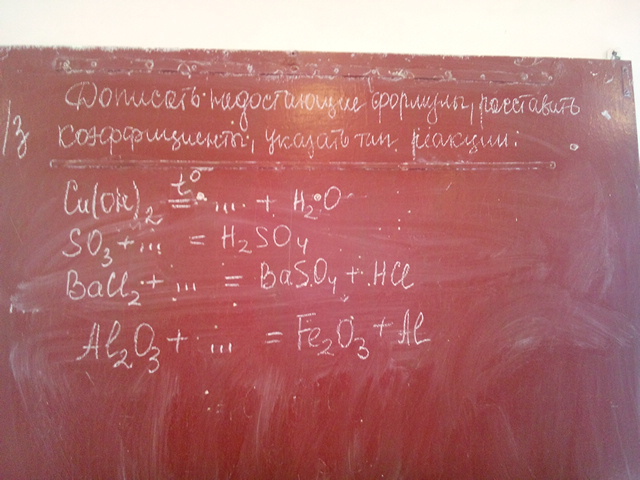 Дописать недостающие формулы, расставить
коэффициенты, указать тип реакции:
Cu(OH)₂ =t° ... + H₂O
SO₃ + ... = H₂SO₄
BaCl₂ + ... = BaSO₄ + HCl
Al₂O₃ + ... = Fe₂O₃ + Al